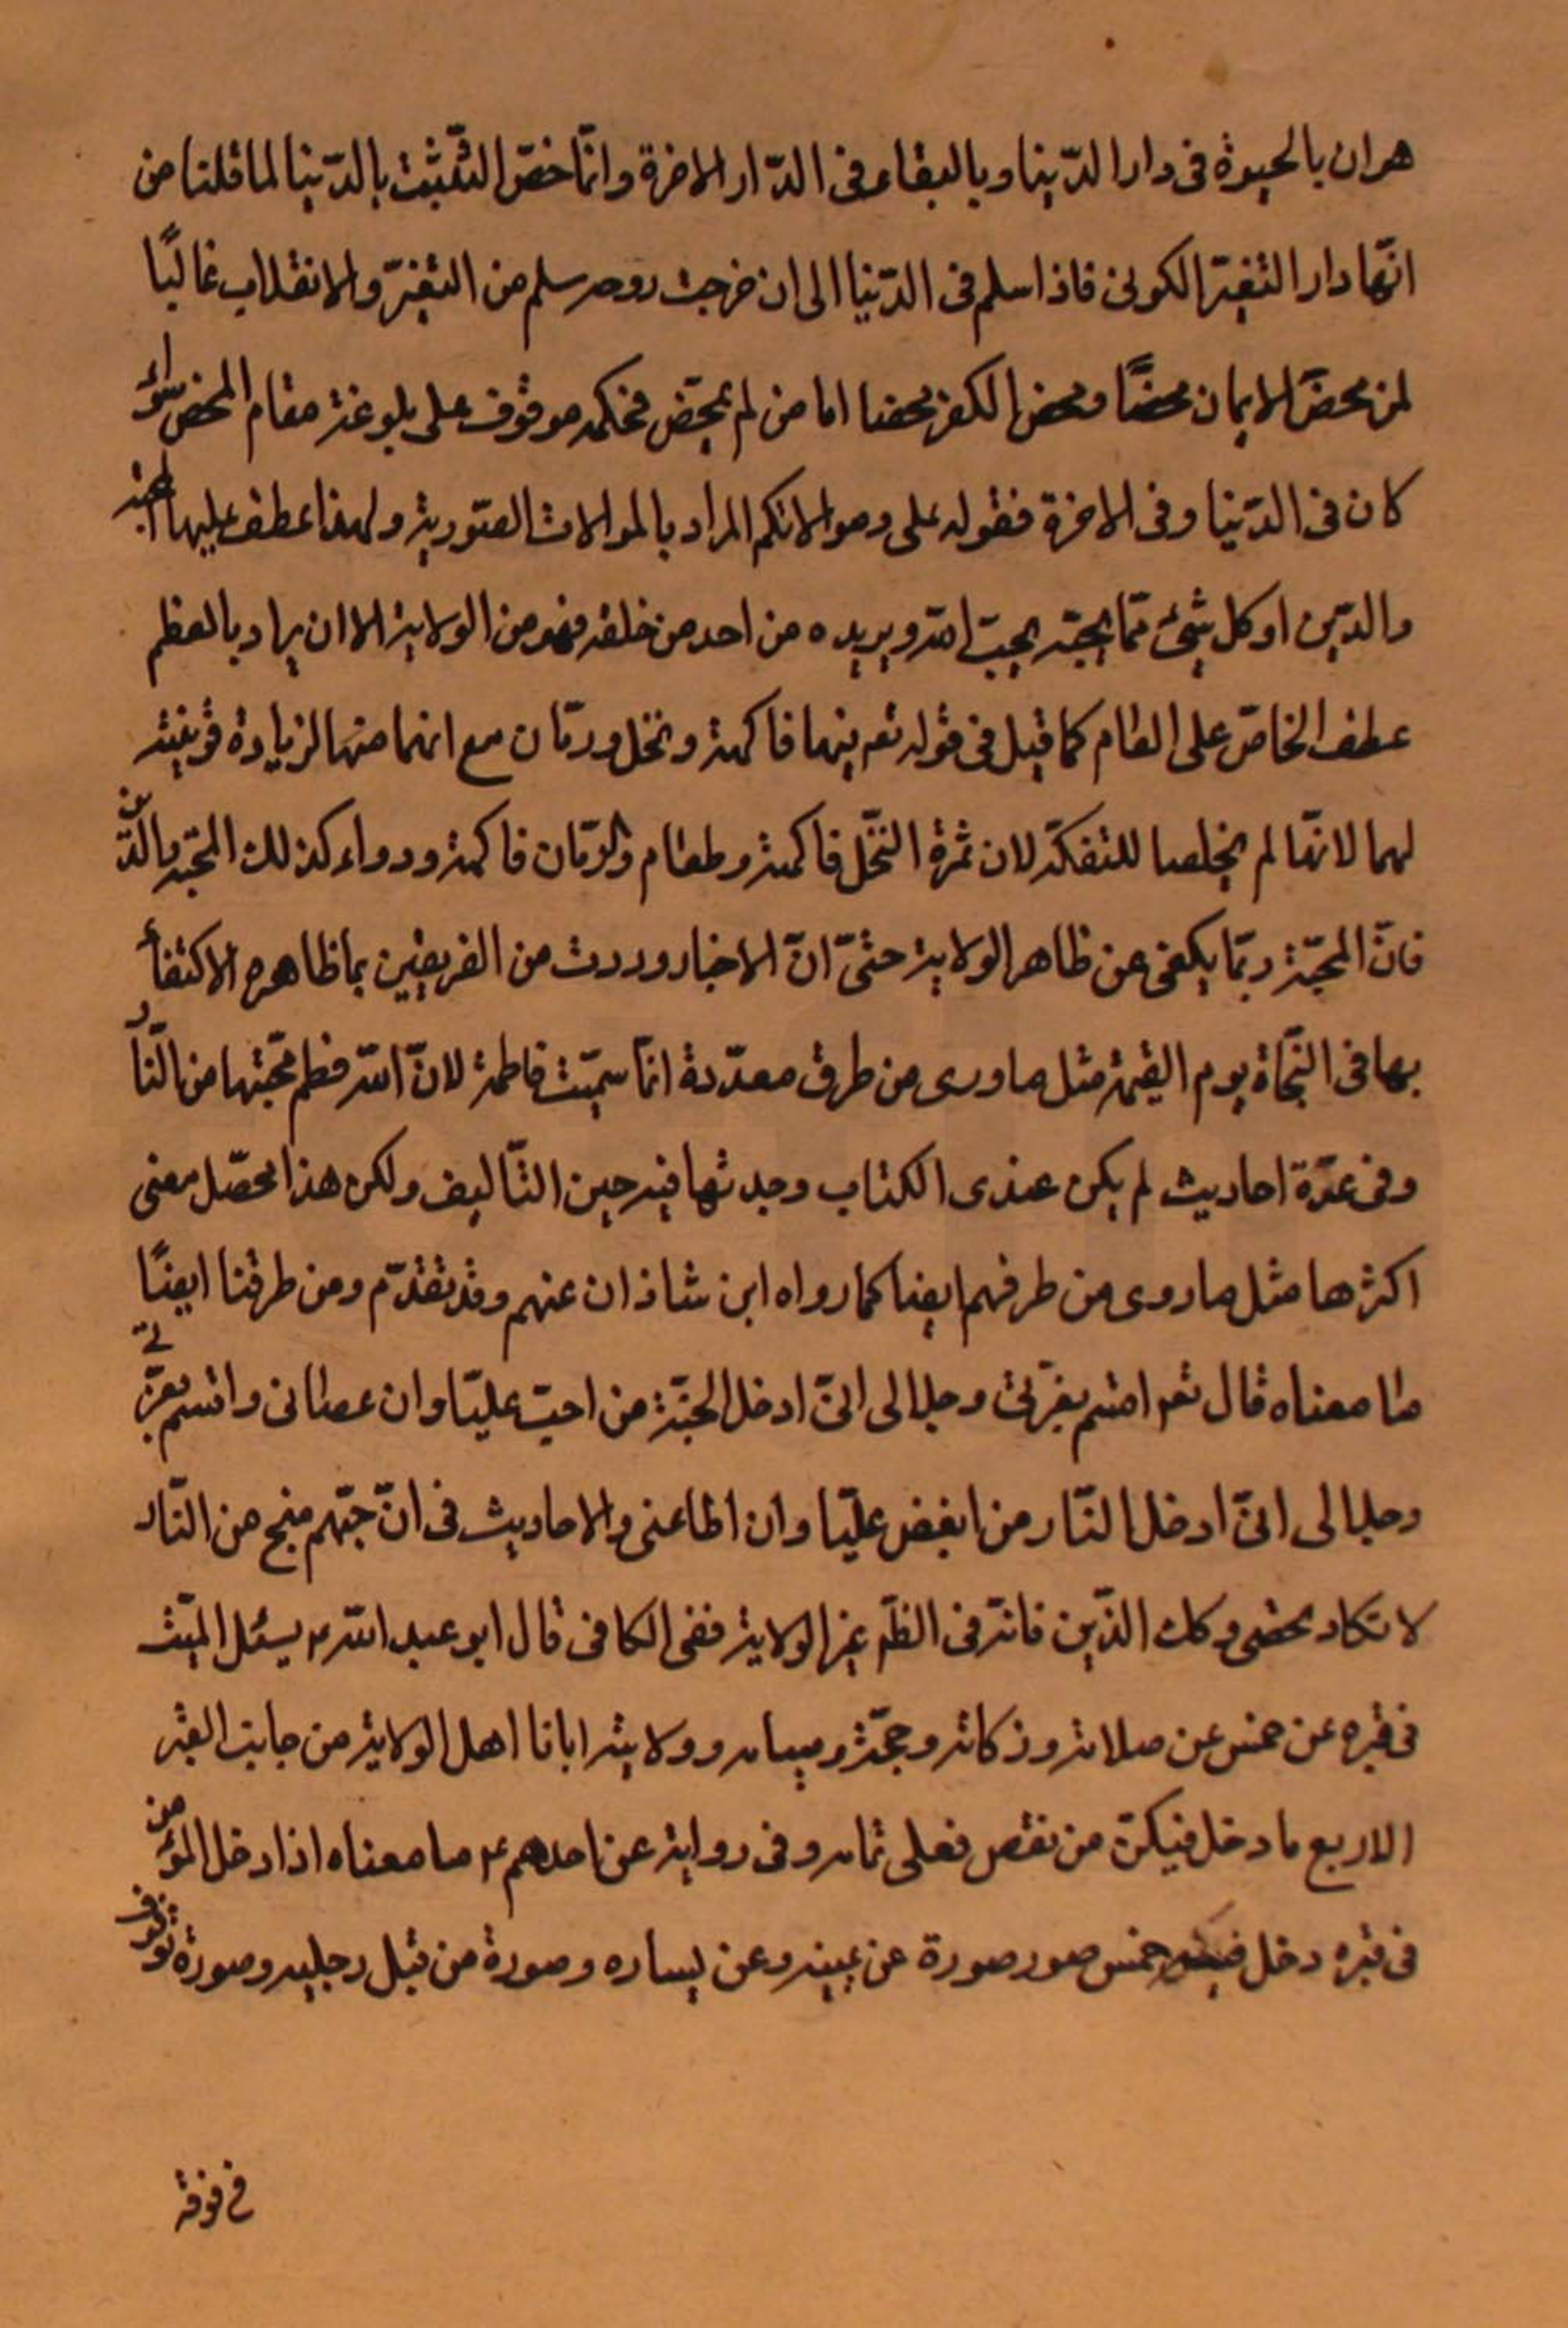 هران بالحيوة فى دار الدّينا وبالبقاء فى الدّار الاخرة وانّما خصّ التّثبت بالدّينا لما قلنا من
انّها دار التغيّر الكونى فاذا سلم فى الدّنيا الى ان خرجت روحه سلم من التغيّر والانقلاب غالبًا
لمن محضَ الايمان محضًا ومحض الكفر محضا اما من لم يمحّض فحكمه موقوف على بلوغه مقام المحض سواء
كان فى الدّنيا وفى الاخرة فقوله على وموالاتكم المراد بالموالات الصّورية ولهذا عطف عليها المحبة
والدّين اوكل شئ ممّا يحبّه يحبّ الله ويريده من احد من خلقه فهو من الولاية الا ان يراد بالعطم
عطف الخاصّ على العام كما قيل فى قوله تعم فيهما فاكهة ونخل ورمّان مع انهما منها لزيادة قرينة
لهما لانّهما لم يخلصا للتفكّه لان ثمرة النّخل فاكهة وطعام والرّمّان فاكهة ودواء كذلك المحبّة والدّين
فانّ المحبّة ربّما يكفى عن ظاهر الولاية حتّى انّ الاخبار وردت من الفريقين بما ظاهره الاكتفاء
بها فى النّجاة يوم القيمة مثل ما وسى من طرق معدّدة انّما سمّيت فاطمة لانّ الله فطم محبّتها من النّار
وفى عدّة احاديث لم يكن عندى الكتاب وجدتها فيه حين التّاليف ولكن هذا محصّل معنى
اكثرها مثل ما روى من طرقهم ايضا كما رواه ابن شاذان عنهم وقد تقدّم ومن طرقنا ايضًا
ما معناه قال تعم اقسم بعزّتى وجلالى انّى ادخل الجنّة من احبّ عليّا وان عصانى واقسم بعزّتى
وجلالى انّى ادخل النّار من ابغض عليّا وان اطاعنى والاحاديث فى انّ حبّهم منج من النّار
لا تكاد تحصى وكك الدّين فانّه فى الظّم غير الولاية ففى الكافى قال ابو عبد الله ع يسئل الميّت
فى قبره عن خمس عن صلاته وزكاته وحجّته وصيامه وولايته ايانا اهل الولاية من جانب القبر
الاربع ما دخل فيكنّ من نقص فعلى تمامه وفى رواية عن احدهم ع ما معناه اذا دخل المؤمن
فى قبره دخل خمس صور صورة عن يمينه وعن يساره وصورة من قبل رجليه وصورة
فى فوقه